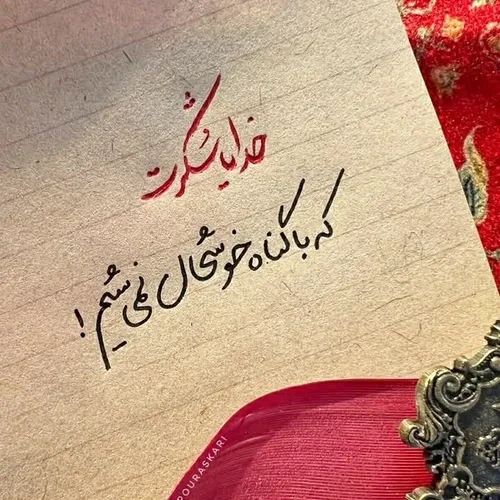 خدایا شُکرت
که با گناه خوشحال نمی‌شیم!
POURASKARI